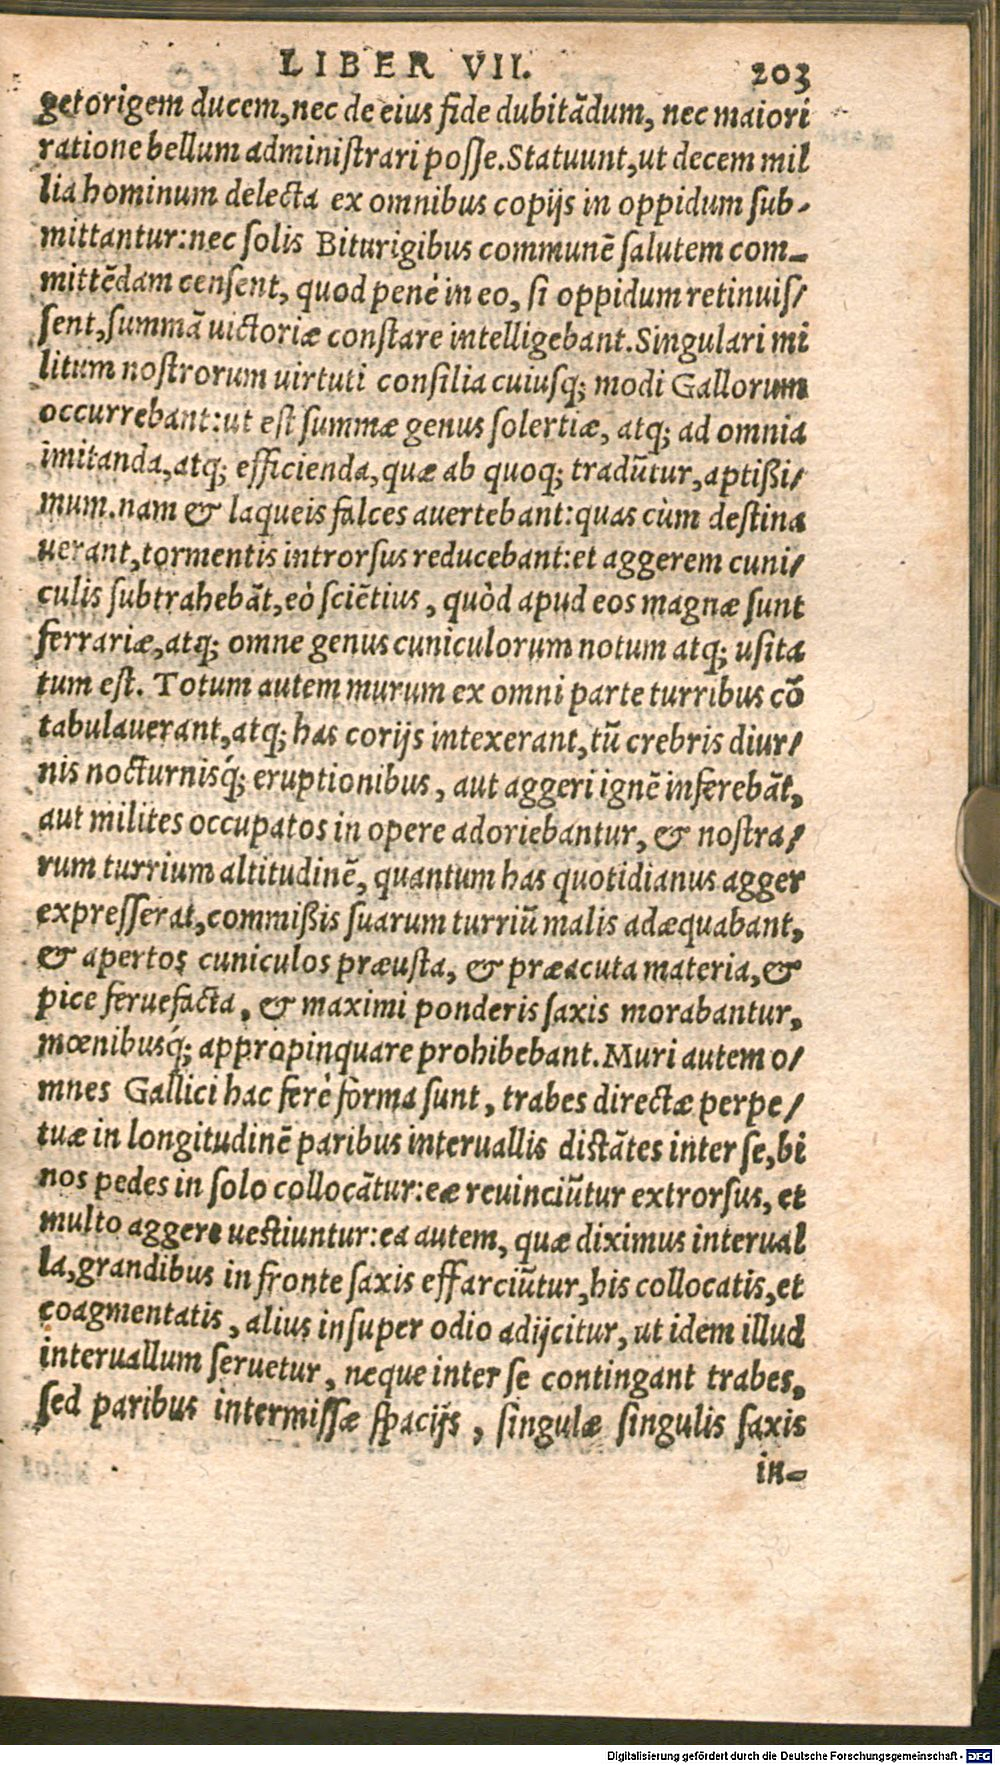 LIBER VII. 203
getorigem ducem, nec de eius fide dubitādum, nec maiori
ratione bellum administrari posse. Statuunt, ut decem mil
lia hominum delecta ex omnibus copijs in oppidum sub-
mittantur: nec solis Biturigibus communē salutem com-
mittēdam censent, quod penè in eo, si oppidum retinuis/
sent, summā uictoriæ constare intelligebant. Singulari mi
litum nostrorum uirtuti consilia cuiusq; modi Gallorum
occurrebant: ut est summæ genus solertiæ, atq; ad omnia
imitanda, atq; efficienda, quæ ab quoq; tradūtur, aptißi/
mum. nam & laqueis falces auertebant: quas cùm destina
uerant, tormentis introrsus reducebant: et aggerem cuni/
culis subtrahebāt, eò sciētius, quòd apud eos magnæ sunt
ferrariæ, atq; omne genus cuniculorum notum atq; usita
tum est. Totum autem murum ex omni parte turribus cō
tabulauerant, atq; has corijs intexerant, tū crebris diur/
nis nocturnisq́; eruptionibus, aut aggeri ignē inferebāt,
aut milites occupatos in opere adoriebantur, & nostra/
rum turrium altitudinē, quantum has quotidianus agger
expresserat, commißis suarum turriū malis adæquabant,
& apertos cuniculos præusta, & præacuta materia, &
pice feruefacta, & maximi ponderis saxis morabantur,
mœnibusq́; appropinquare prohibebant. Muri autem o/
mnes Gallici hac ferè forma sunt, trabes directæ perpe/
tuæ in longitudinē paribus interuallis distātes inter se, bi
nos pedes in solo collocātur: eæ reuinciūtur extrorsus, et
multo aggere uestiuntur: ea autem, quæ diximus interual
la, grandibus in fronte saxis effarciūtur, his collocatis, et
coagmentatis, alius insuper odio adijcitur, ut idem illud
interuallum seruetur, neque inter se contingant trabes,
sed paribus intermissæ spacijs, singulæ singulis saxis
in-
Digitalisierung gefördert durch die Deutsche Forschungsgemeinschaft - DFG